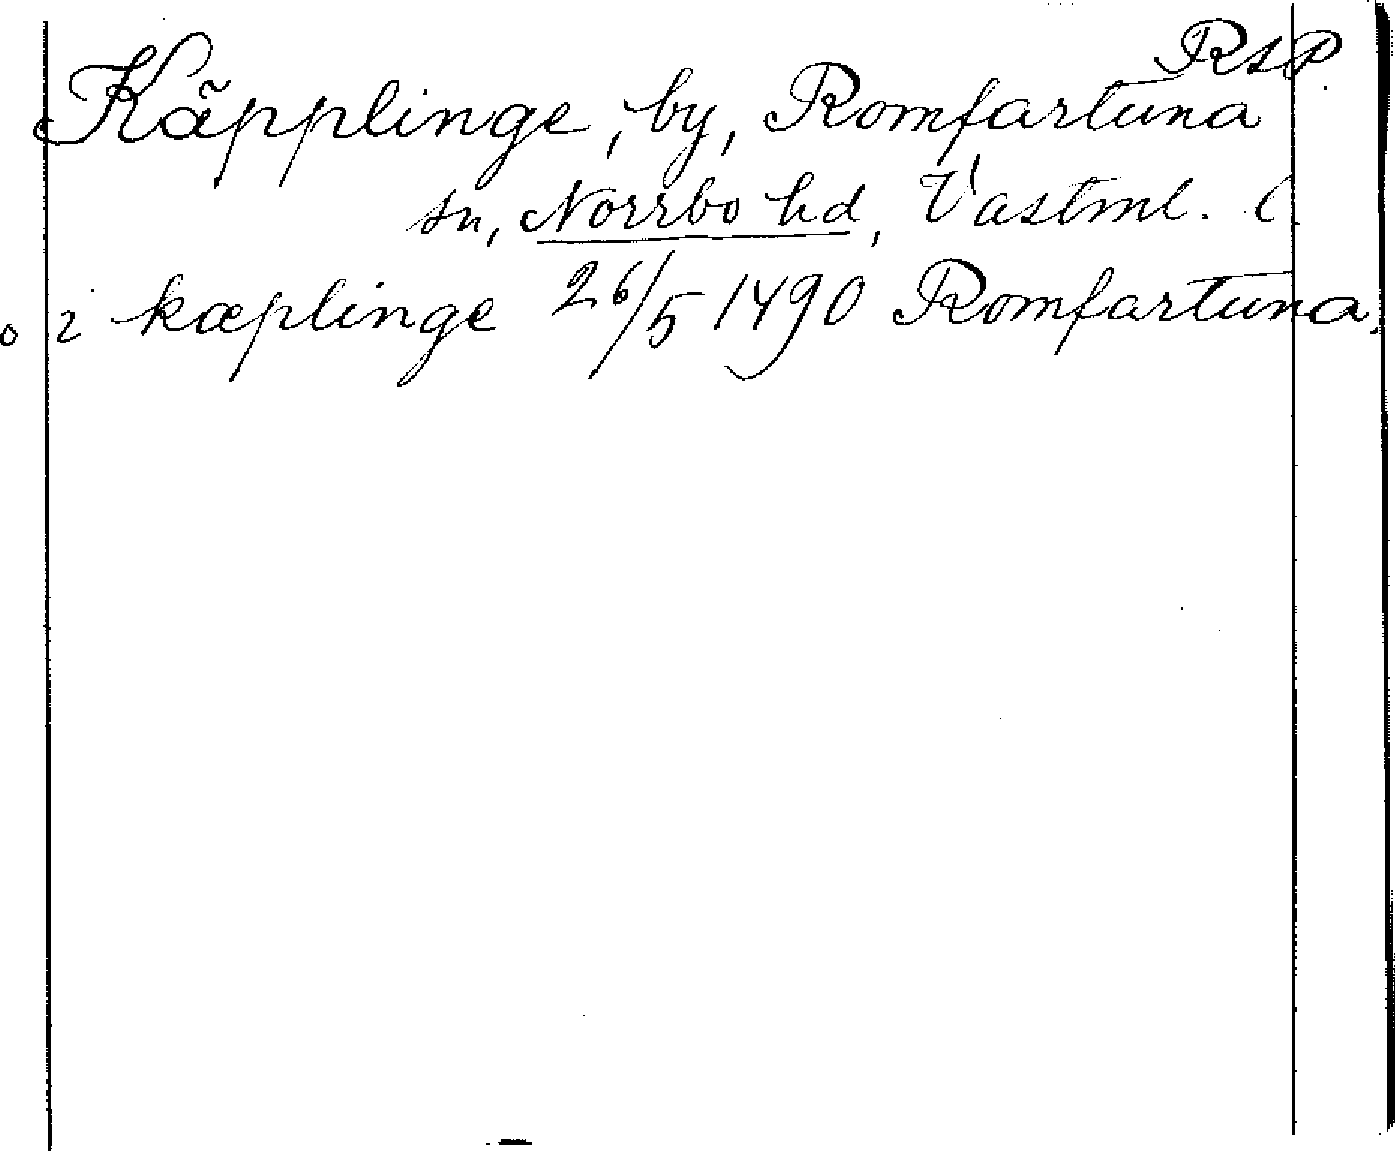 RAP.
Käpplinge, by, Romfartuna
sn, Norrbo hd, Västml. l.
o i kæplinge 26/5 1490 Romfartuna.